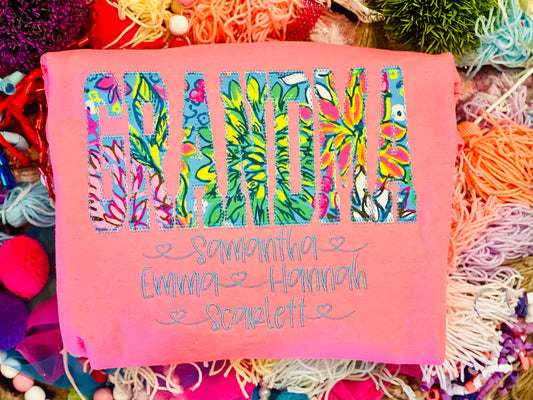 GRANDMA
Samantha
Emma Hannah
Scarlett